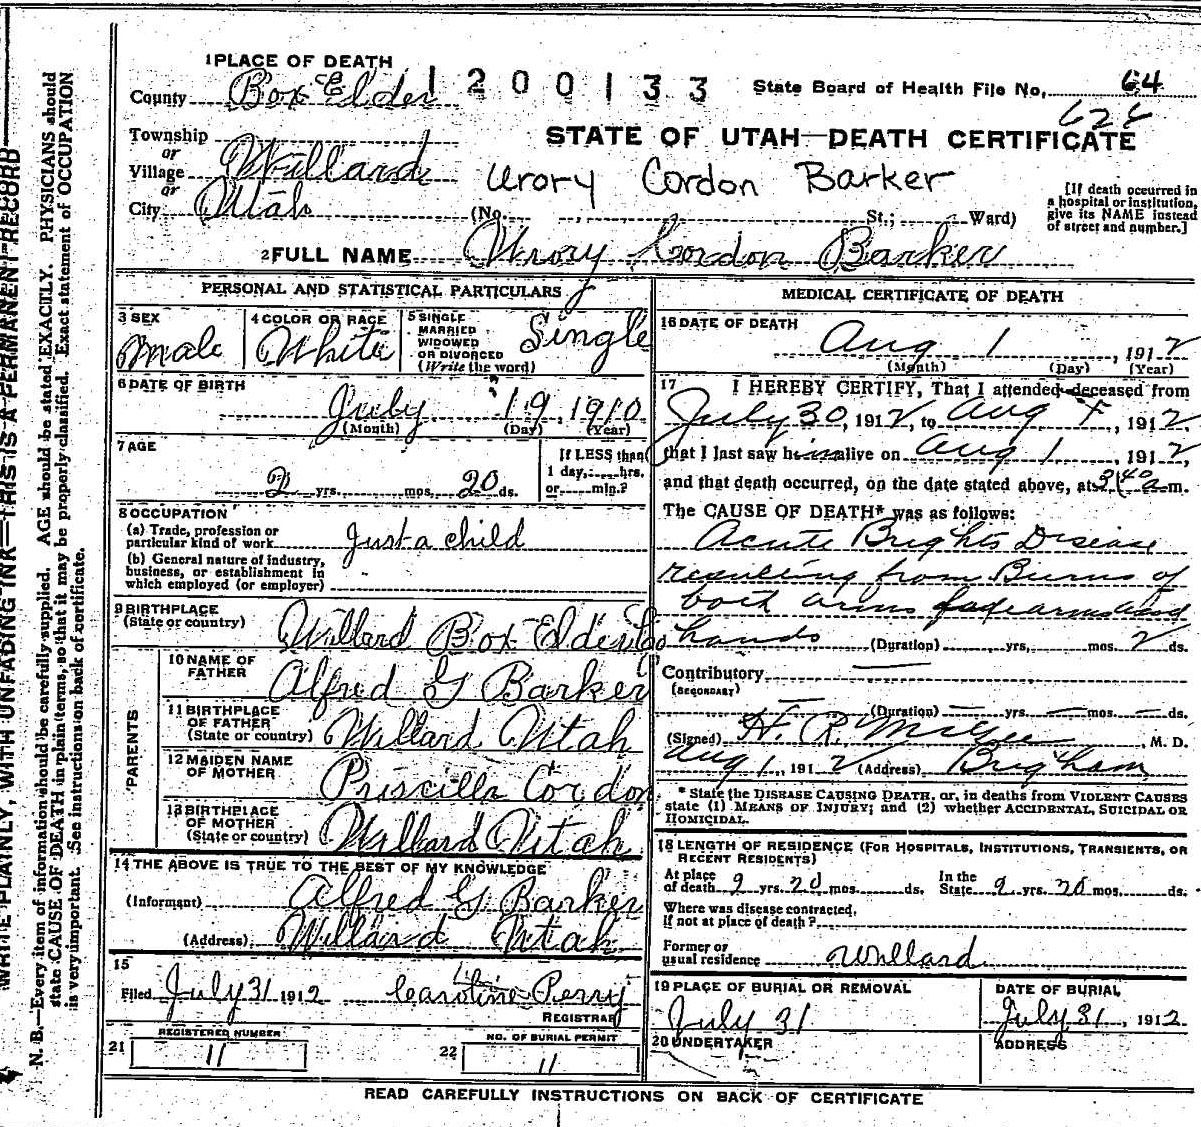 1 PLACE OF DEATH
County Box Elder
1200133
State Board of Health File No. 64
626
Township
or
Village Willard
or
City Utah
STATE OF UTAH—DEATH CERTIFICATE
Urory Cordon Barker
(No. , St.; Ward)
[If death occurred in a hospital or institution, give its NAME instead of street and number.]
2 FULL NAME Urory Cordon Barker
PERSONAL AND STATISTICAL PARTICULARS
3 SEX
Male
4 COLOR OR RACE
White
5 SINGLE
MARRIED
WIDOWED
OR DIVORCED
(Write the word)
Single
6 DATE OF BIRTH
July 19, 1910
(Month) (Day) (Year)
7 AGE
2 yrs. mos. 20 ds.
If LESS than
1 day, hrs.
or min.?
8 OCCUPATION
(a) Trade, profession or
particular kind of work Just a child
(b) General nature of industry,
business, or establishment in
which employed (or employer)
9 BIRTHPLACE
(State or country) Willard Box Elder Co
PARENTS
10 NAME OF
FATHER Alfred G Barker
11 BIRTHPLACE
OF FATHER
(State or country) Willard Utah
12 MAIDEN NAME
OF MOTHER Priscilla Cordon
13 BIRTHPLACE
OF MOTHER
(State or country) Willard Utah
14 THE ABOVE IS TRUE TO THE BEST OF MY KNOWLEDGE
(Informant) Alfred G Barker
(Address) Willard Utah
15
Filed July 31 1912 Caroline Perry
REGISTRAR
REGISTERED NUMBER
21 11
NO. OF BURIAL PERMIT
22 11
MEDICAL CERTIFICATE OF DEATH
16 DATE OF DEATH
Aug 1, 1912
(Month) (Day) (Year)
17 I HEREBY CERTIFY, That I attended deceased from
July 30, 1912, to Aug 1, 1912
that I last saw him alive on Aug 1, 1912,
and that death occurred, on the date stated above, at 3:40 a m.
The CAUSE OF DEATH* was as follows:
Acute Brights Disease
resulting from Burns of
both arms and
hands (Duration) yrs. mos. 2 ds.
Contributory
(SECONDARY)
(Duration) yrs. mos. ds.
(Signed) H. R. McGee, M. D.
Aug 1, 1912 (Address) Brigham
* State the DISEASE CAUSING DEATH, or, in deaths from VIOLENT CAUSES
state (1) MEANS OF INJURY; and (2) whether ACCIDENTAL, SUICIDAL OR
HOMICIDAL.
18 LENGTH OF RESIDENCE (FOR HOSPITALS, INSTITUTIONS, TRANSIENTS, OR
RECENT RESIDENTS)
At place
of death 2 yrs. 20 mos. ds. In the
State 2 yrs. 20 mos. ds.
Where was disease contracted,
if not at place of death?
Former or
usual residence Willard
19 PLACE OF BURIAL OR REMOVAL
July 31
DATE OF BURIAL
July 31, 1912
20 UNDERTAKER
ADDRESS
READ CAREFULLY INSTRUCTIONS ON BACK OF CERTIFICATE
WRITE PLAINLY, WITH UNFADING INK—THIS IS A PERMANENT RECORD
N. B.—Every item of information should be carefully supplied. AGE should be stated EXACTLY. PHYSICIANS should
state CAUSE OF DEATH in plain terms, so that it may be properly classified. Exact statement of OCCUPATION
is very important. See instructions on back of certificate.